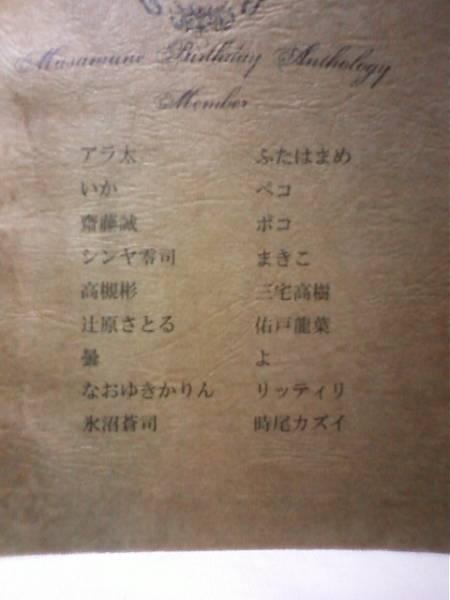 Masamune Birthday Anthology
Member
アラ太
いか
齋藤誠
シンヤ零司
高槻彬
辻原さとる
曇
なおゆきかりん
氷沼蒼司
ふたはまめ
ペコ
ポコ
まきこ
三宅高樹
佑戸龍葉
よ
リッティリ
時尾カズイ